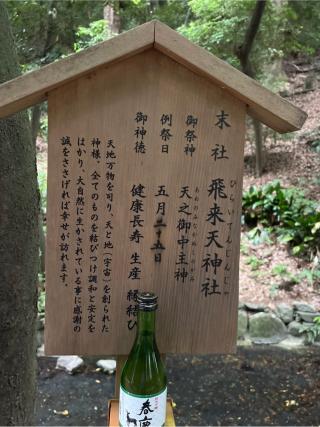 末社 飛来天神社
ひらいてんじんじゃ
御祭神 天之御中主神
あめのみなかぬしのかみ
例祭日 五月二十五日
御神徳 健康長寿 生産 縁結び
天地万物を司り、天と地(宇宙)を創られた
神様。全てのものを結びつけ調和と安定を
はかり、大自然に生かされている事に感謝の
誠をささげれば幸せが訪れます。
春鹿